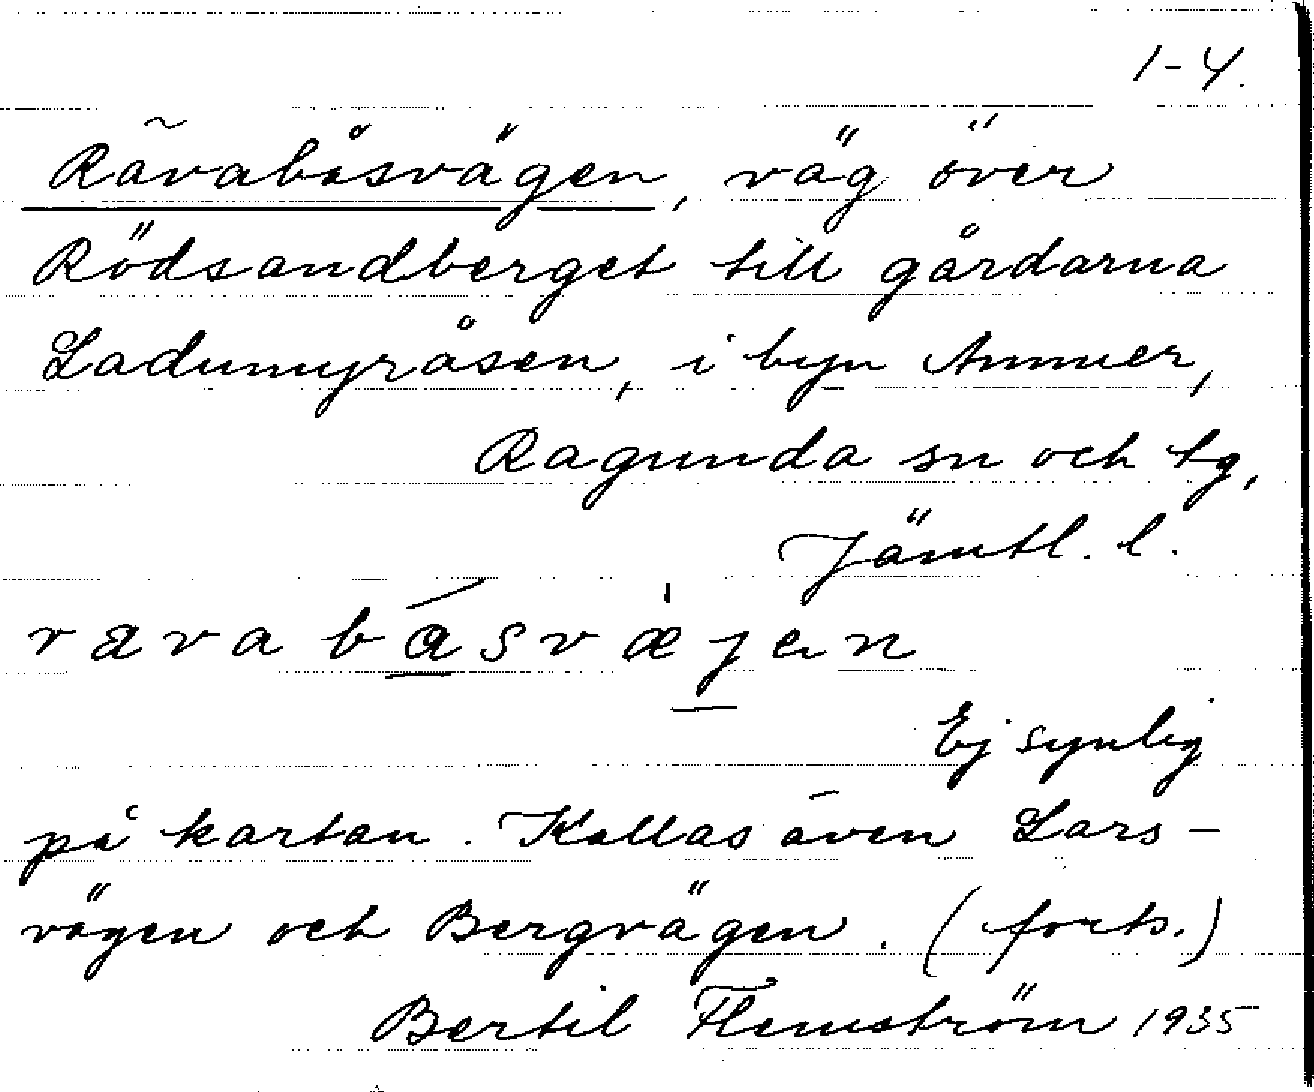 1-4.
Rävabåsvägen, väg över
Rödsandberget till gårdarna
Ladumyråsen, i byn Ammer,
Ragunda sn och tg,
Jämtl. l.
rava båsvæjen
Ej synlig
på kartan. Kallas även Lars-
vägen och Bergvägen. (forts.)
Bertil Flemström 1935